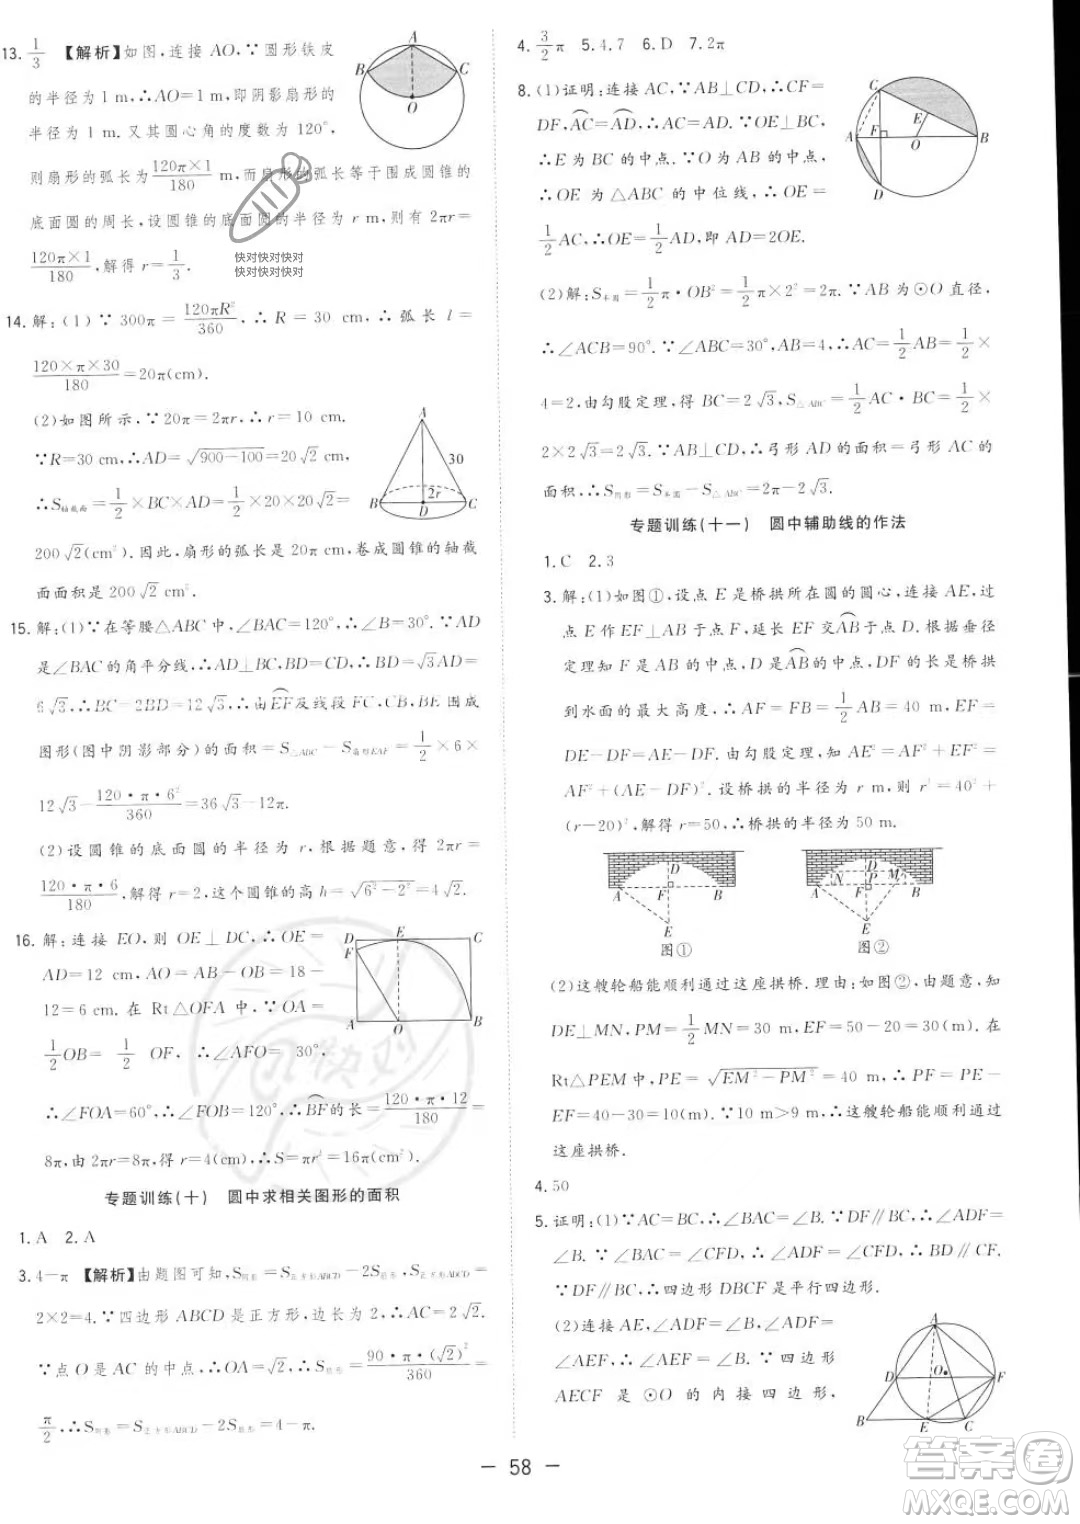 13. 1/3 【解析】如图,连接 AO,∵圆形铁皮
的半径为 1 m,∴AO=1 m,即阴影扇形的
半径为 1 m. 又其圆心角的度数为 120°,
则扇形的弧长为 120π×1/180 m,而扇形的弧长等于围成圆锥的
底面圆的周长,设圆锥的底面圆的半径为 r m,则有 2πr=
120π×1/180,解得 r=1/3.
A
B
C
O
快对快对快对
快对快对快对
14. 解:(1)∵300π=120πR²/360,∴R=30 cm,∴弧长 l=
120×π×30/180=20π(cm).
(2)如图所示,∵20π=2πr,∴r=10 cm.
∵R=30 cm,∴AD=√(900-100)=20√2(cm).
∴S轴截面=1/2×BC×AD=1/2×20×20√2=
200√2(cm²). 因此,扇形的弧长是 20π,卷成圆锥的轴截
面面积是 200√2 cm².
A
30
B
2r
C
D
15. 解:(1)∵在等腰△ABC 中,∠BAC=120°,∴∠B=30°. ∵AD
是∠BAC 的角平分线,∴AD⊥BC,BD=CD,∴BD=√3AD=
6√3,∴BC=2BD=12√3,∴由EF⌒及线段 FC,CB,BE 围成
图形(图中阴影部分)的面积=S△ABC-S扇形EAF=1/2×6×
12√3-120•π•6²/360=36√3-12π.
(2)设圆锥的底面圆的半径为 r,根据题意,得 2πr=
120•π•6/180,解得 r=2,这个圆锥的高 h=√(6²-2²)=4√2.
16. 解:连接 EO,则 OE⊥DC,∴OE=
AD=12 cm,AO=AB-OB=18-
12=6 cm. 在 Rt△OFA 中,∵OA=
1/2OB= 1/2 OF,∴∠AFO= 30°,
∴∠FOA=60°,∴∠FOB=120°,∴BF⌒的长=120•π•12/180=
8π,由 2πr=8π,得 r=4(cm),∴S=πr²=16π(cm²).
D
E
C
F
A
O
B
专题训练(十) 圆中求相关图形的面积
1. A 2. A
3. 4-π 【解析】由题图可知,S阴影=S正方形ABCD-2S扇形,S正方形ABCD=
2×2=4. ∵四边形 ABCD 是正方形,边长为 2,∴AC=2√2.
∵点 O 是 AC 的中点,∴OA=√2,∴S扇形=90•π•(√2)²/360=
π/2,∴S阴影=S正方形ABCD-2S扇形=4-π.
4. 3/2π 5. 4.7 6. D 7. 2π
8. (1)证明:连接 AC,∵AB⊥CD,∴CF=
DF,AC⌒=AD⌒,∴AC=AD. ∵OE⊥BC,
∴E 为 BC 的中点. ∵O 为 AB 的中点,
∴OE 为△ABC 的中位线,∴OE=
1/2AC,∴OE=1/2AD,即 AD=2OE.
(2)解:S半圆=1/2π•OB²=1/2π×2²=2π. ∵AB 为⊙O 直径,
∴∠ACB=90°. ∵∠ABC=30°,AB=4,∴AC=1/2AB=1/2×
4=2. 由勾股定理,得 BC=2√3,S△ABC=1/2AC•BC=1/2×
2×2√3=2√3. ∵AC=AD,∴弓形 AD 的面积=弓形 AC 的
面积,∴S阴影=S半圆-S△ABC=2π-2√3.
C
E
A
F
O
B
D
专题训练(十一) 圆中辅助线的作法
1. C 2. 3
3. 解:(1)如图①,设点 E 是桥拱所在的圆的圆心,连接 AE,过
点 E 作 EF⊥AB 于点 F,延长 EF 交AB⌒于点 D. 根据垂径
定理知 F 是 AB 的中点,D 是AB⌒的中点,DF 的长是桥拱
到水面的最大高度,∴AF=FB=1/2AB=40 m,EF=
DE-DF=AE-DF. 由勾股定理,知 AE²=AF²+EF²=
AF²+(AE-DF)². 设桥拱的半径为 r,则 r²=40²+
(r-20)²,解得 r=50,∴桥拱的半径为 50 m.
D
A
F
B
E
图①
D
N
P
M
A
F
B
E
图②
(2)这艘轮船能顺利通过这座拱桥. 理由:如图②,由题意,知
DE⊥MN,PM=1/2MN=30 m,EF=50-20=30 m. 在
Rt△PEM 中,PE=√(EM²-PM²)=40 m,∴PF=PE-
EF=40-30=10(m). ∵10 m>9 m,∴这艘轮船能顺利通过
这座拱桥.
4. 50
5. 证明:(1)∵AC=BC,∴∠BAC=∠B. ∵DF∥BC,∴∠ADF=
∠B. ∵∠BAC=∠CFD,∴∠ADF=∠CFD,∴BD∥CF.
∵DF∥BC,∴四边形 DBCF 是平行四边形.
(2)连接 AE,∵∠ADF=∠B,∠ADF=
∠AEF,∴∠AEF=∠B. ∵四边形
AECF 是 ⊙O 的内接四边形,
A
D
O
F
B
E
C
— 58 —
答案圈
MXQE.COM